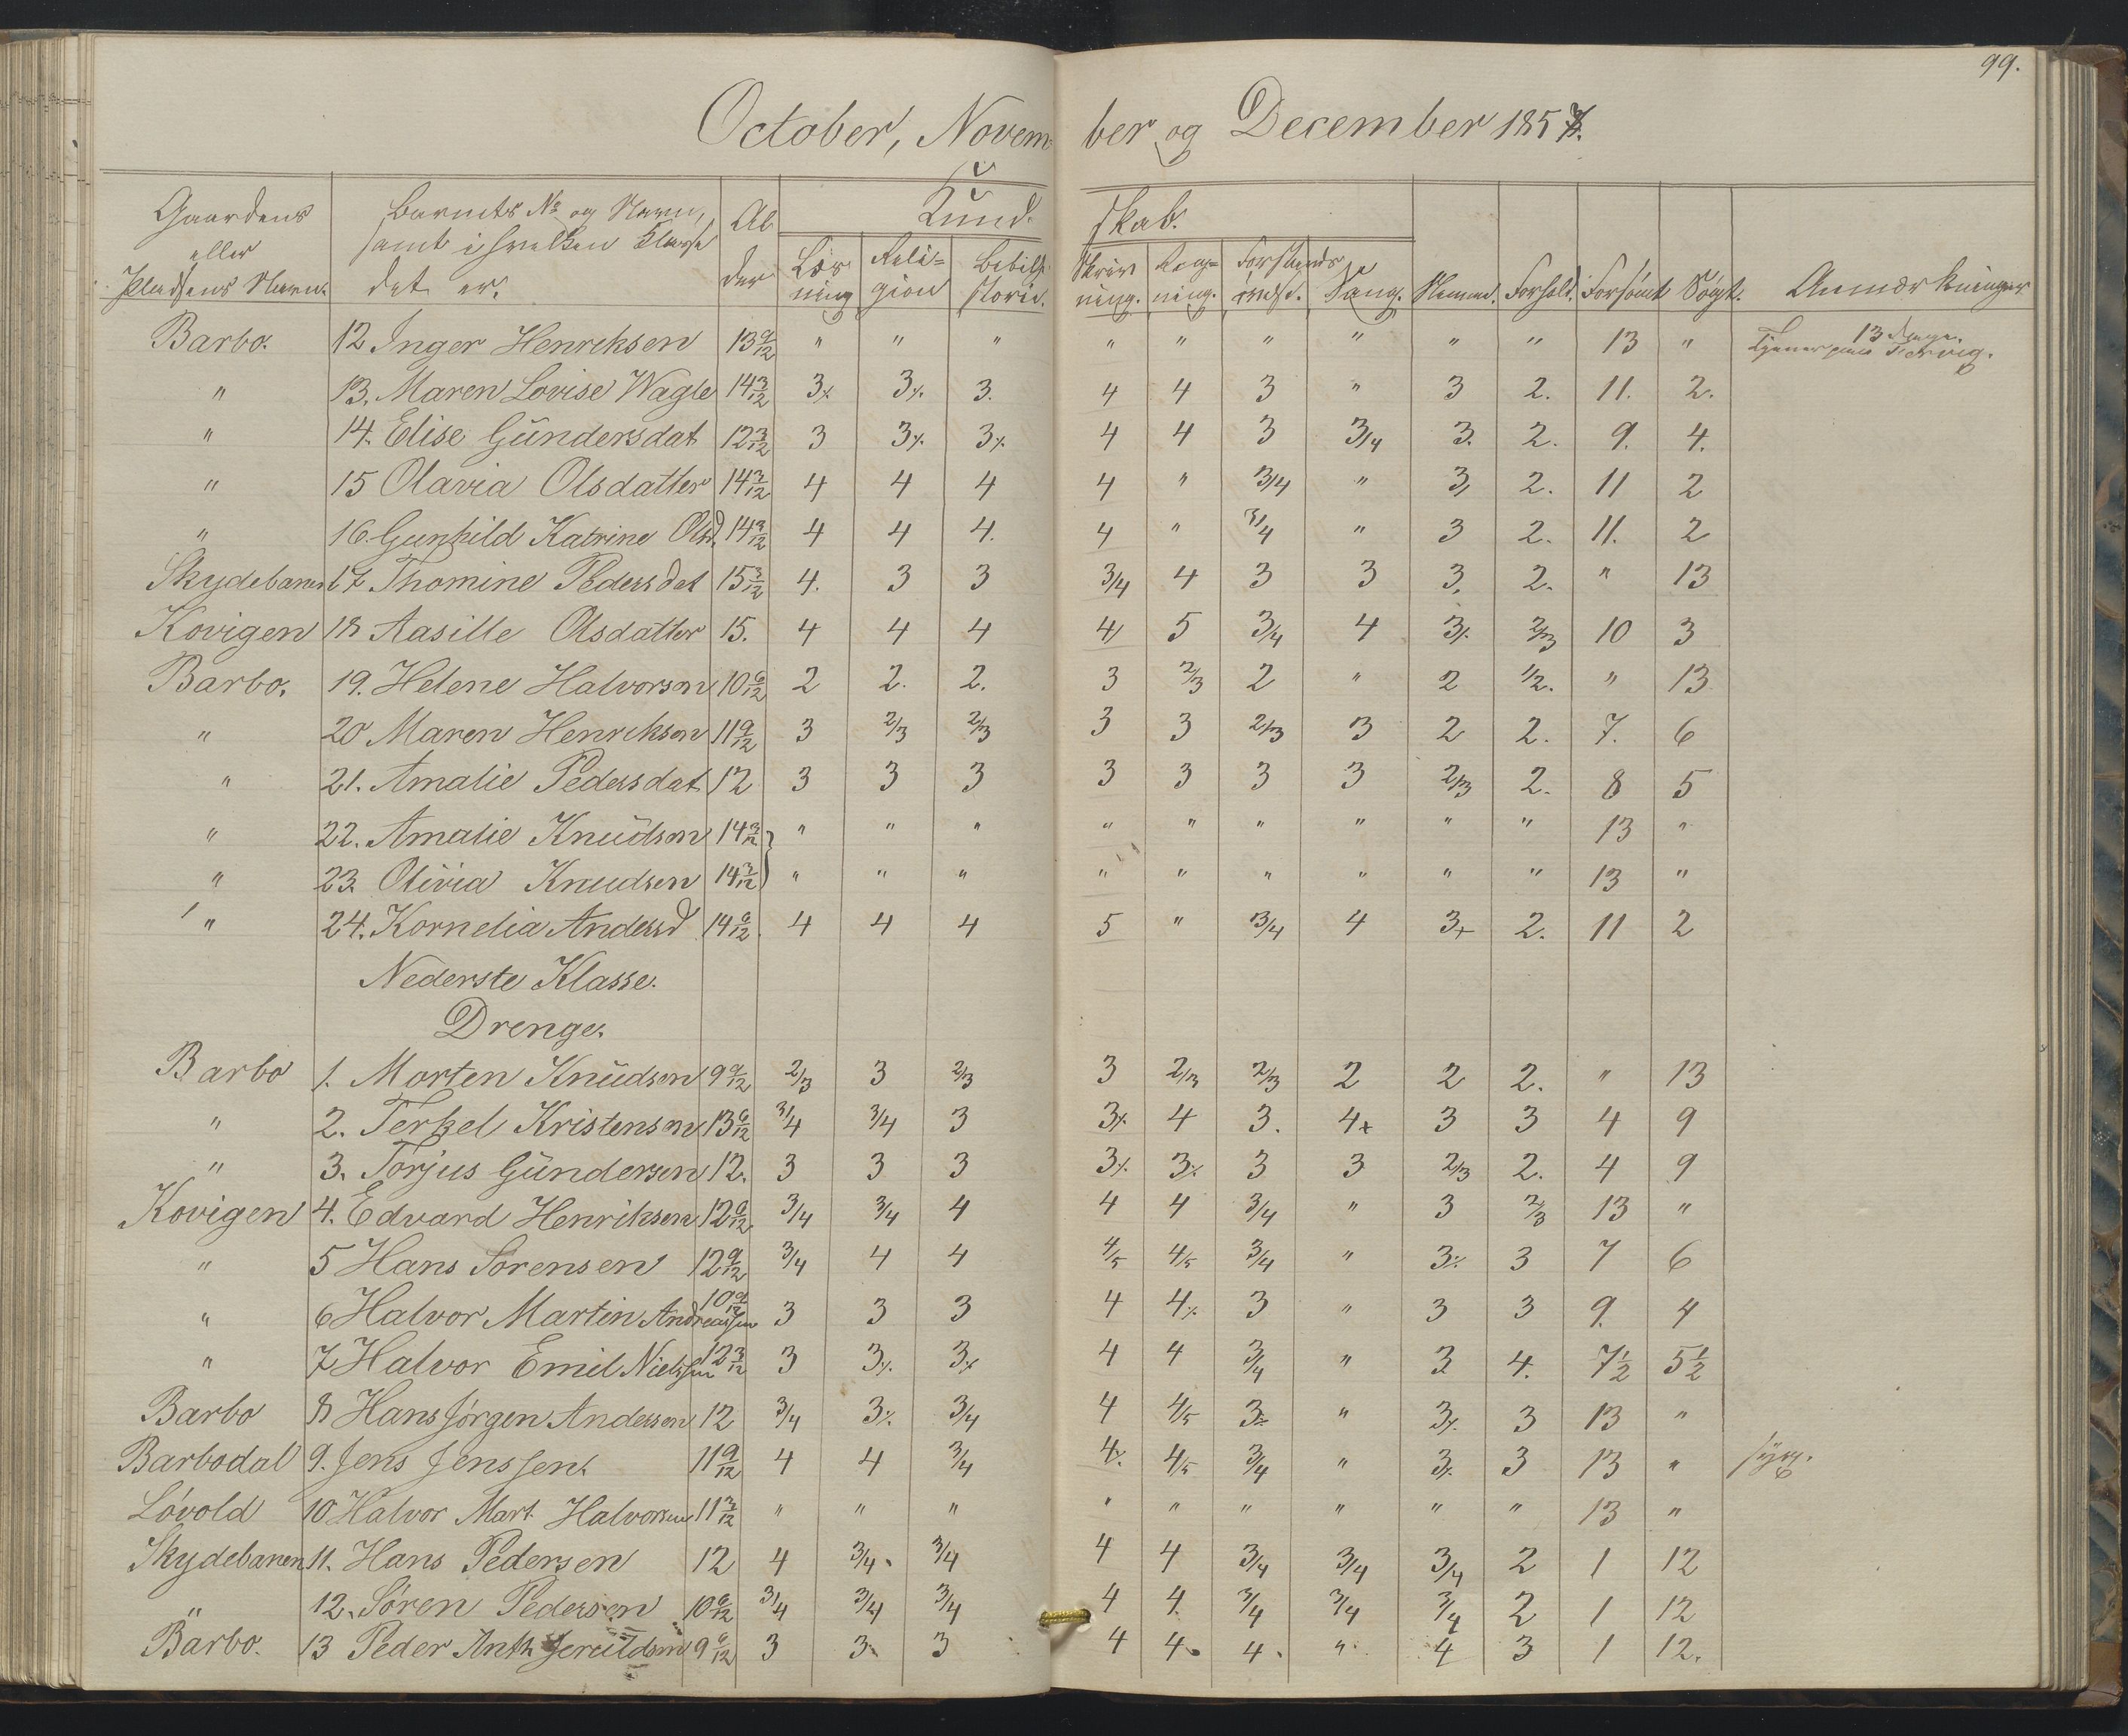 99.
October, November og December 1857.
Kundskab.
Gaardens eller Pladsens Navn. Barnets No og Navn, samt i hvilken Klasse det er. Alder Læsning Religion Bibelhistorie. Skrivning. Regning. Forstandsøvelse. Sang. Nemme. Forhold. Forsømt Søgt. Anmærkninger
Barbo. 12 Inger Henriksen 13 9/12 " " " " " " " " " 13 " 13 Dage. Tjener paa
" 13. Maren Lovise Wagle 14 3/12 3% 3% 3. 4 4 3 " 3 2. 11. 2.
" 14. Elise Gündersdat 12 3/12 3 3% 3% 4 4 3 3/4 3. 2. 9. 4.
" 15 Olavia Olsdatter 14 3/12 4 4 4 4 " 3/4 " 3 2. 11 2
" 16. Gunhild Katrine Olsd. 14 3/12 4 4 4. 4 " 3/4 " 3 2. 11. 2
Skydebanen 17 Thomine Pedersdat 15 3/12 4. 3 3 3/4 4 3 3 3. 2. " 13
Kovigen 18 Aasille Olsdatter 15. 4 4 4 4 5 3/4 4 3% 2/3 10 3
Barbo. 19. Helene Halvorsen 10 6/12 2 2. 2. 3 2/3 2 " 2 1/2. " 13
" 20 Maren Henriksen 11 9/12 3 2/3 2/3 3 3 2/3 3 2 2. 7. 6
" 21. Amalie Pedersdat. 12 3 3 3 3 3 3 3 2/3 2. 8 5
" 22. Amalie Knüdsen 14 3/12 " " " " " " " " " 13 "
" 23. Olivia Knudsen 14 3/12 " " " " " " " " " 13 "
" 24. Kornelia Andersd 14 9/12 4 4 4 5 " 3/4 4 3+ 2. 11 2
Nederste Klasse.
Drenge.
Barbo 1. Morten Knüdsen 9 9/12 2/3 3 2/3 3 2/3 2/3 2 2 2. " 13
" 2. Terkel Kristensen 13 6/12 3/4 3/4 3 3% 4 3. 4+ 3 3 4 9
" 3. Torjus Gündersen 12. 3 3 3 3% 3% 3 3 2/3 2. 4 9
Kovigen 4. Edvard Henriksen 12 9/12 3/4 3/4 4 4 4 3/4 " 3 2/3 13 "
" 5 Hans Sorensen 12 9/12 3/4 4 4 4/5 4/5 3/4 " 3% 3 7 6
" 6 Halvor Martin Andreassen 10 9/12 3 3 3 4 4% 3 " 3 3 9. 4
" 7 Halvor Emil Nielssen 12 3/12 3 3% 3% 4 4 3/4 " 3 4. 7 1/2 5 1/2
Barbo 8 Hans Jörgen Andersen 12 3/4 3% 3/4 4 4/5 3% " 3% 3 13 "
Barbodal 9. Jens Jenssen. 11 9/12 4 4 3/4 4% 4/5 3/4 " 3% 3 13 " syg.
Lóvold 10 Halvor Mart Halvorsen 11 3/12 " " " " " " " " " 13 "
Skydebanen 11. Hans Pedersen 12 4 3/4. 3/4 4 4 3/4 3/4 3/4 2 1 12
" 12. Sóren Pedersen 10 6/12 3/4 3/4 3/4 4 4 3/4 3/4 3/4 2 1 12
Barbo. 13 Peder Anth 9 6/12 3 3 3 4 4. 4. " 4 3 1 12.